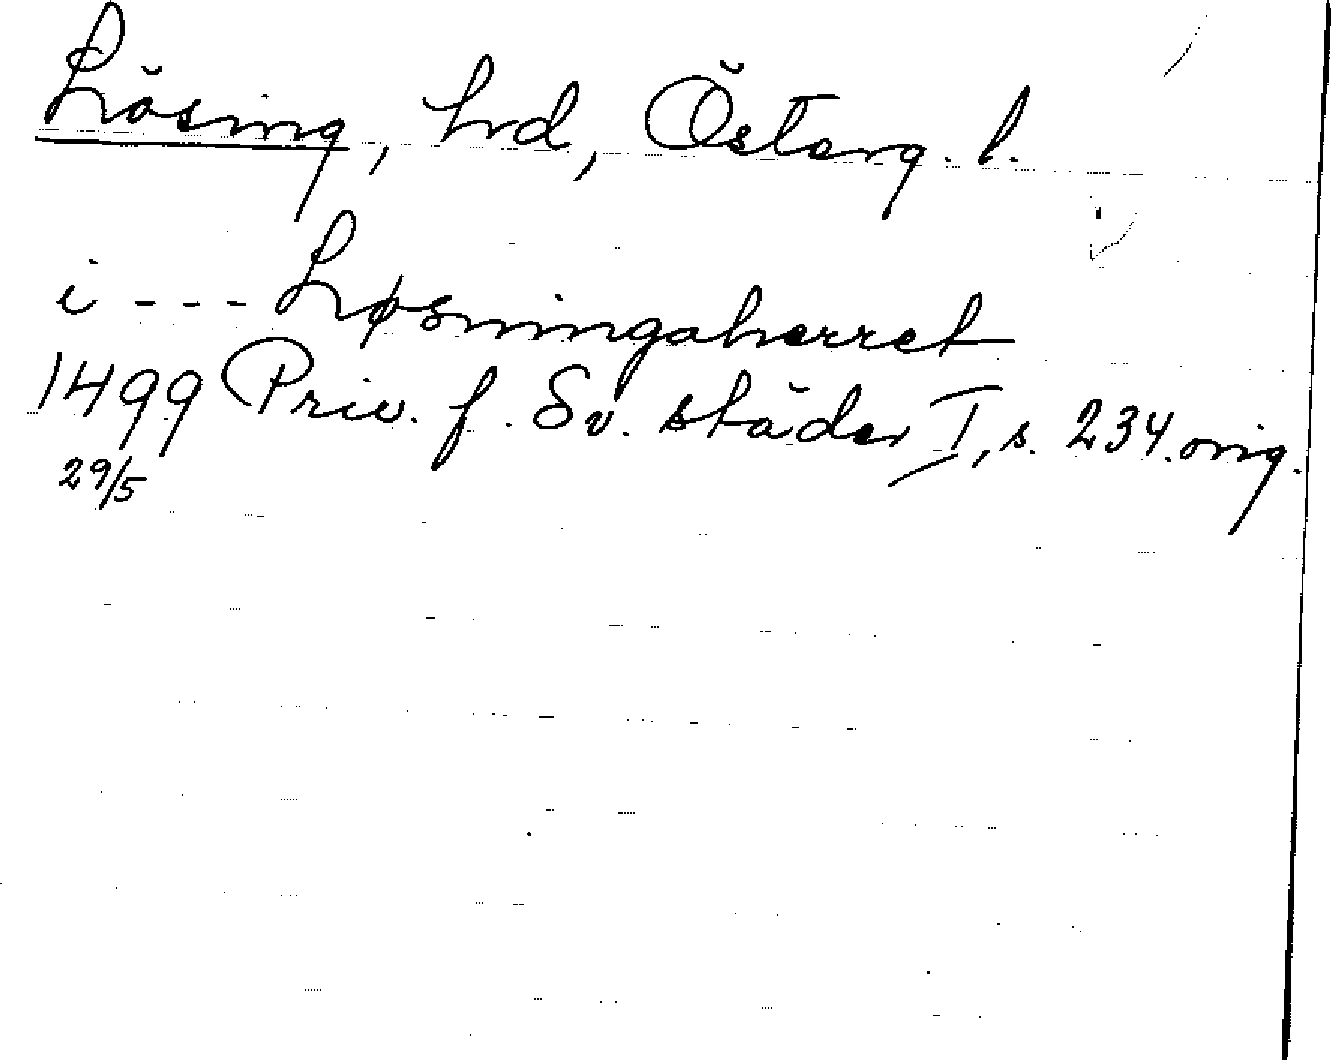 Lösing, hrd, Österg. l.
i --- Løsningaherret
1499 Priv. f. Sv. städer I, s. 234. orig.
29/5